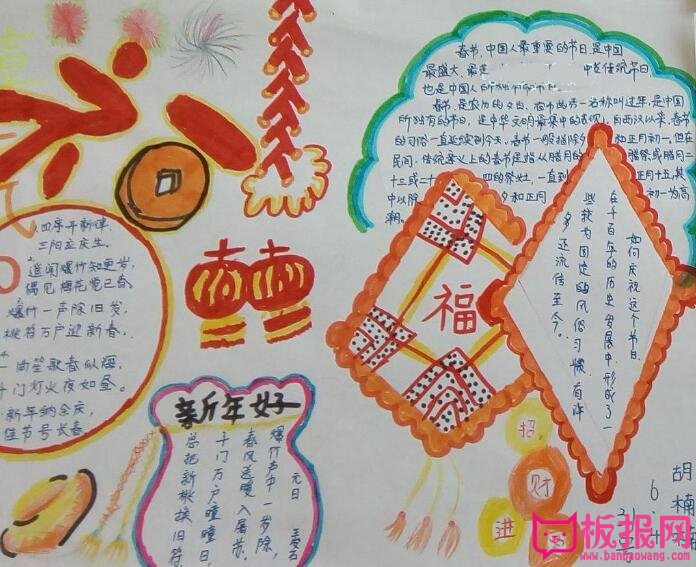 春节,中国人最重要的节日,是中国
最盛大、最
传统节日
也是中国人所独有的节日。
春节,是农历的岁首,春节的另一名称叫过年,是中国
所独有的节日,是中华文明最集中的表现,自西汉以来,春节
的习俗一直延续到今天,春节一般指除夕和正月初一。但在
民间,传统意义上的春节是指从腊月的
腊祭或腊月二
十三或二十
四的祭灶,一直到
正月十五,其
中以除
夕和正月
初一为高
潮。
如何庆祝这个节日,
在千百年的历史发展中,形成了一
些较为固定的风俗习惯,有许
多还流传至今。
福
四序开新律,
三阳应庆生。
遥闻爆竹知更岁,
偶见梅花觉已春。
爆竹一声除旧岁,
桃符万户迎新春。
一曲笙歌春似海,
千门灯火夜如昼。
新年纳余庆,
佳节号长春
新年好
元日 王安石
爆竹声中一岁除,
春风送暖入屠苏。
千门万户曈曈日,
总把新桃换旧符
招
财
进
胡楠
6.
板报网
www.banbaowang.com